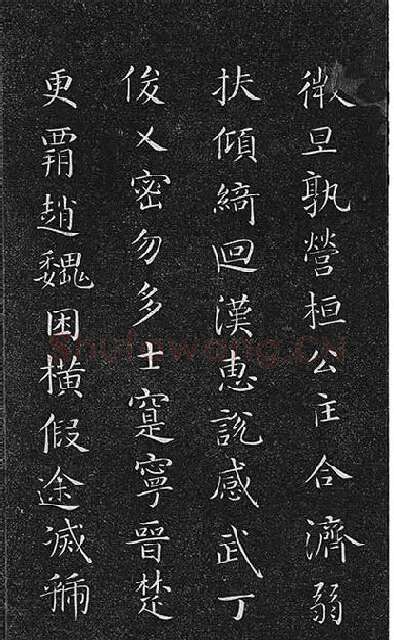 微旦孰營桓公匡合濟弱
扶傾綺迴漢惠說感武丁
俊乂密勿多士寔寧晉楚
更霸趙魏困橫假途滅虢